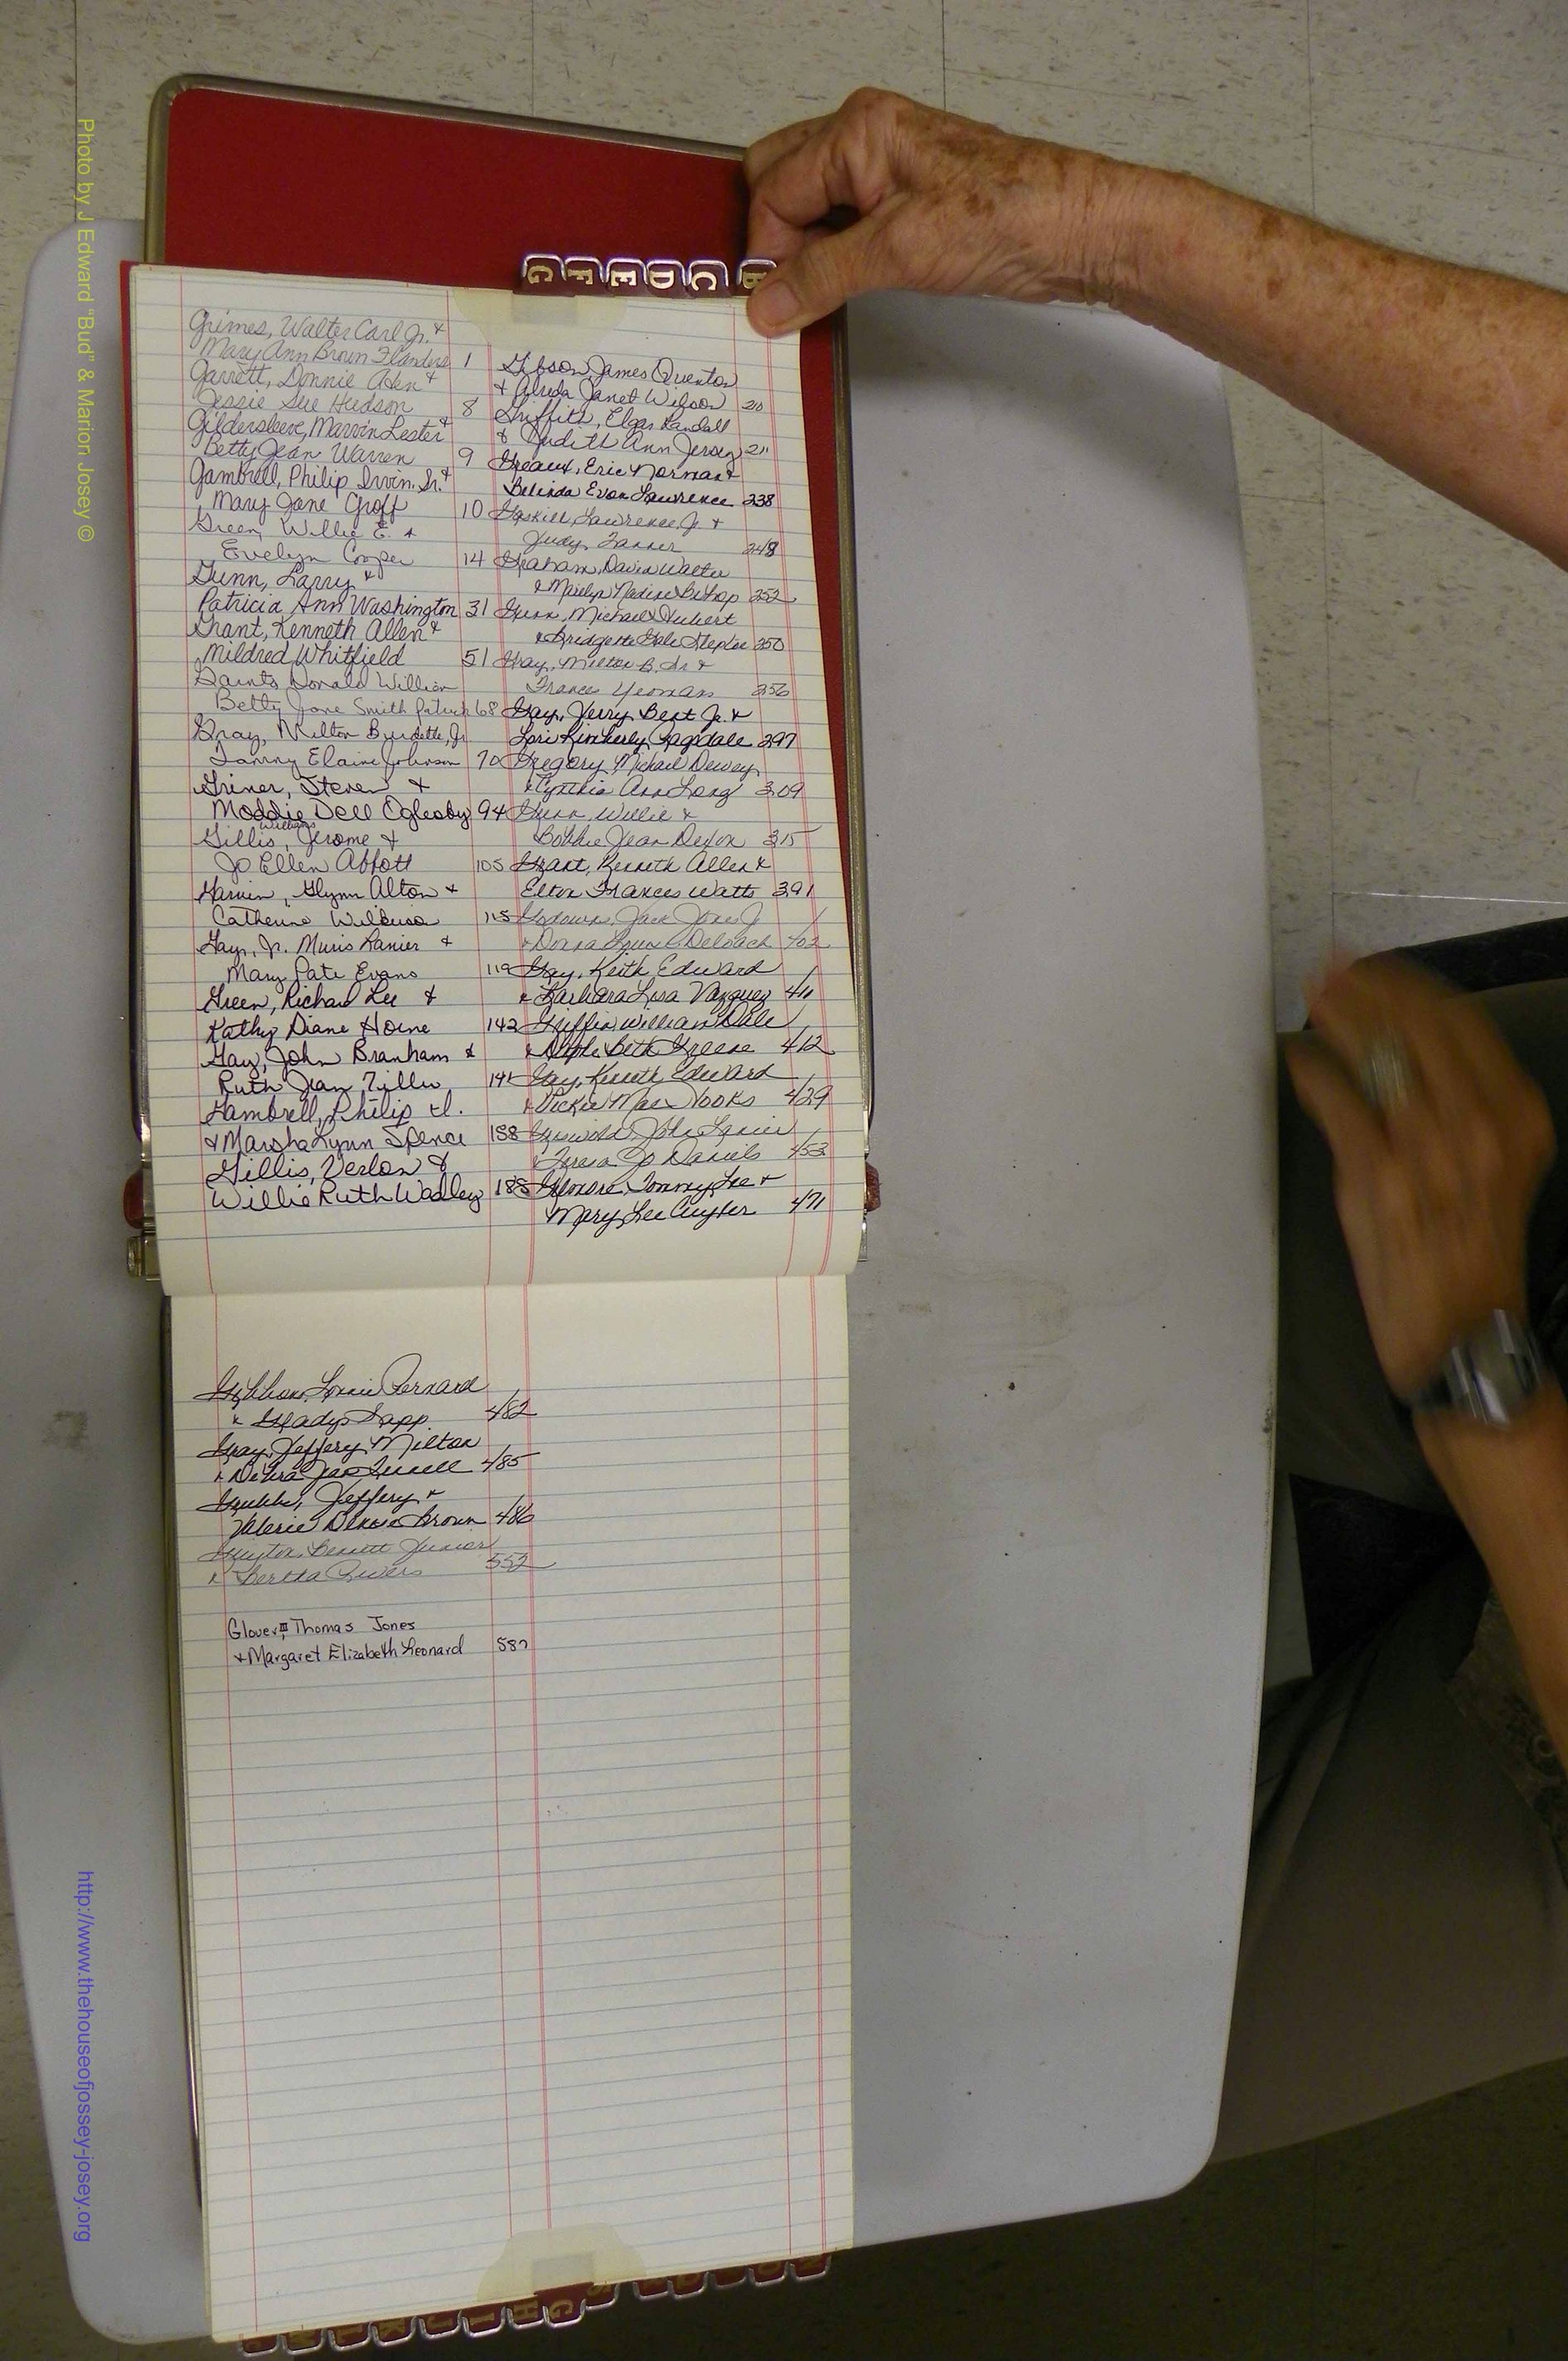 G F E D C B
Grimes, Walter Carl Jr. &
Mary Ann Brown Flanders 1
Garrett, Donnie Aden &
Jessie Sue Hudson 8
Gildersleeve, Marvin Lester &
Betty Jean Warren 9
Gambrell, Philip Irvin, Sr. &
Mary Jane Groff 10
Green, Willie E. &
Evelyn Cooper 14
Gunn, Larry &
Patricia Ann Washington 31
Grant, Kenneth Allen &
Mildred Whitfield 51
Donald William
Betty Jane Smith 68
Gray, Milton Burdette, Jr
Tammy Elaine Johnson 70
Griner, Steven &
Moddie Dell Oglesby 94
Williams
Gillis, Jerome &
Jo Ellen Abbott 105
Garvin, Glynn Alton &
Catherine 115
Gay, Jr. Muris Lanier &
Mary Pate Evans 119
Green, Richard Lee &
Kathy Diane Horne 142
Gay, John Branham &
Ruth Jean
Gambrell, Philip I.
& Marsha Lynn Spence 158
Gillis, Verlon &
Willie Ruth Wadley 185
Gibson, James Quenton
& Janet Wilson 210
Griffith, Elgar Randall
& Judith Ann Jersey 211
Greaux, Eric Norman &
Belinda Evon Lawrence 238
Gaskill, Lawrence, Jr. &
Judy Tanner 248
Graham, David Walter
& Marilyn Nadine Bishop 252
Gunn, Michael Hubert
& Bridgette Gale 250
Gray, Milton B. Sr &
Frances Yeoman 256
Gay, Jerry Bert Jr. &
Lori Kimberly Ragsdale 297
Gregory, Michael Dewey
& Cynthia Ann Long 309
Gunn, Willie &
Bobbie Jean Dixon 315
Grant, Kenneth Allen &
Frances Watts 391
Jack Jr
& Donna Deloach 402
Gay, Keith Edward
& Barbara Lisa Vazquez 411
Griffin, William Dale
& Beth Greene 412
Gay, Kenneth Edward
& Vickie Mae Nooks 429
Griswold, John Lanier
& Teresa Jo Daniels 453
Gilmore, Tommy Lee &
Mary Lee Cuyler 471
Bernard
& Gladys Sapp 482
Gray, Jeffery Milton
& Debra 485
Grubbs, Jeffery &
Valerie Denise Brown 486
Guyton, Bennett Junior
& Bertha Rivers 552
Glover III, Thomas Jones
& Margaret Elizabeth Leonard 587
Photo by J Edward "Bud" & Marion Josey ©
http://www.thehouseofjossey-josey.org